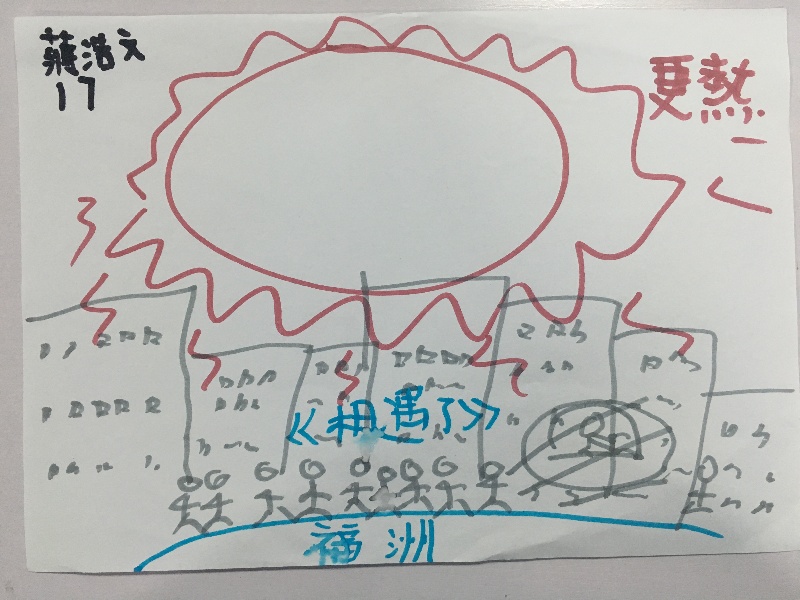 蔣浩文
17
更熱
《相遇了》
福洲